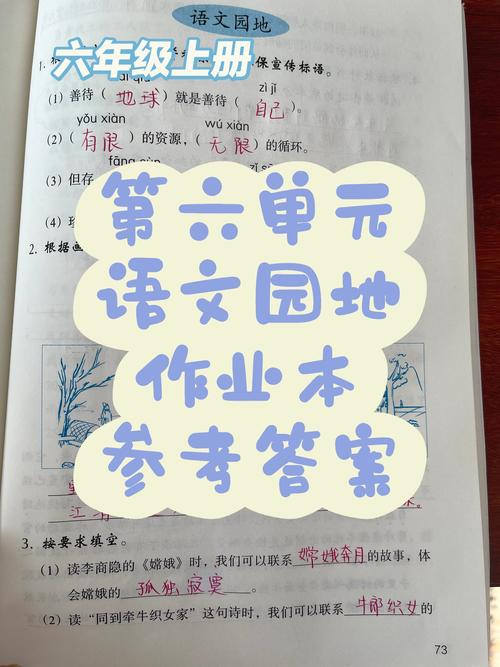 语文园地
六年级上册
保宣传标语。
zì jǐ
(1) 善待(地球)就是善待(自己)。
yǒu xiàn wú xiàn
(2)(有限)的资源,(无限)的循环。
(3) 但存
(4)
2. 根据
第六单元
语文园地
作业本
参考答案
3. 按要求填空。
(1) 读李商隐的《嫦娥》时,我们可以联系嫦娥奔月的故事,体
会嫦娥的孤独寂寞。
(2) 读“同到牵牛织女家”这句诗时,我们可以联系牛郎织女的
73